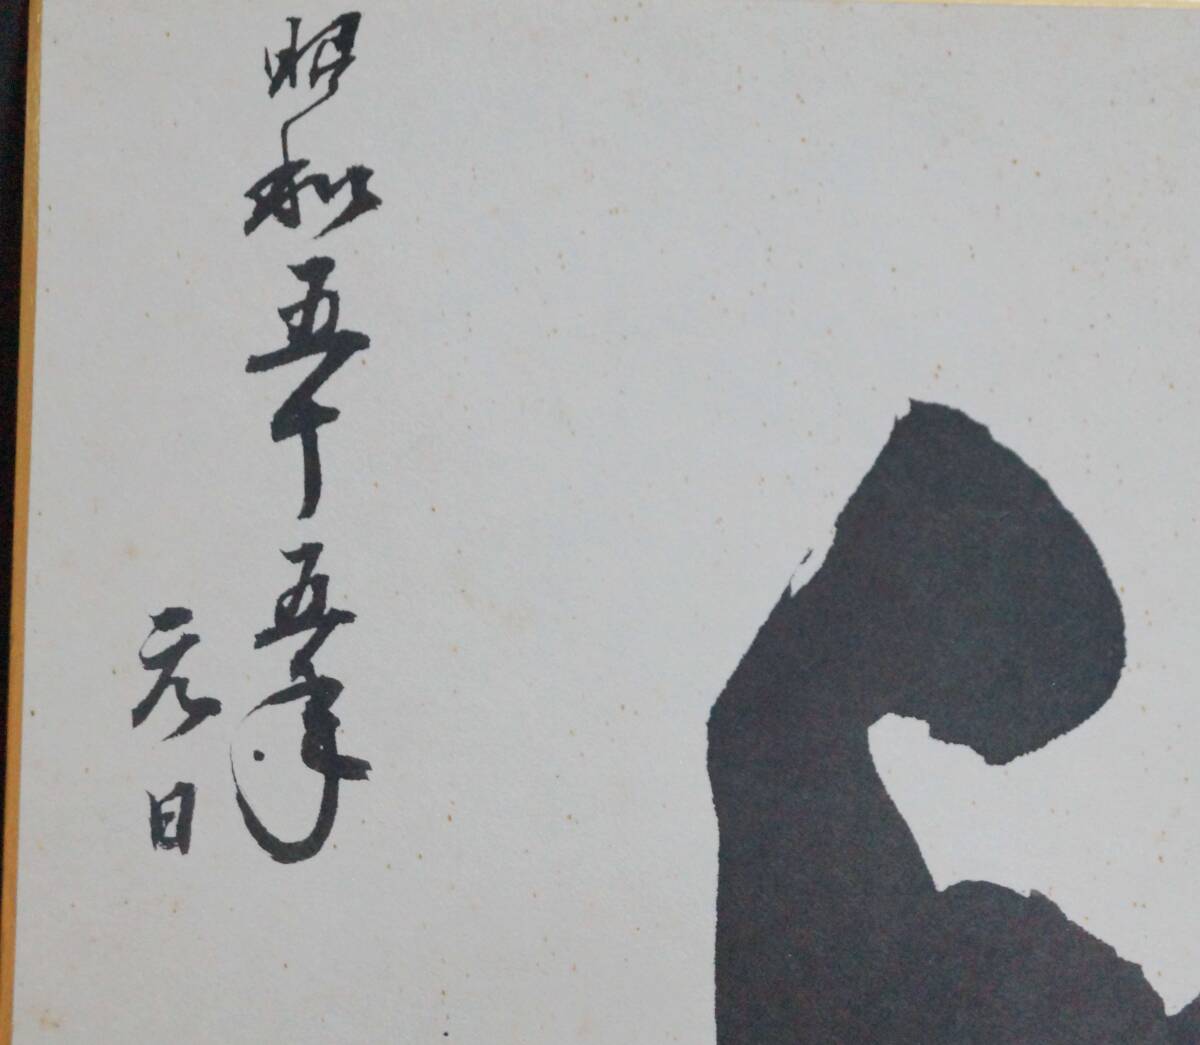 昭和五十五年
元日